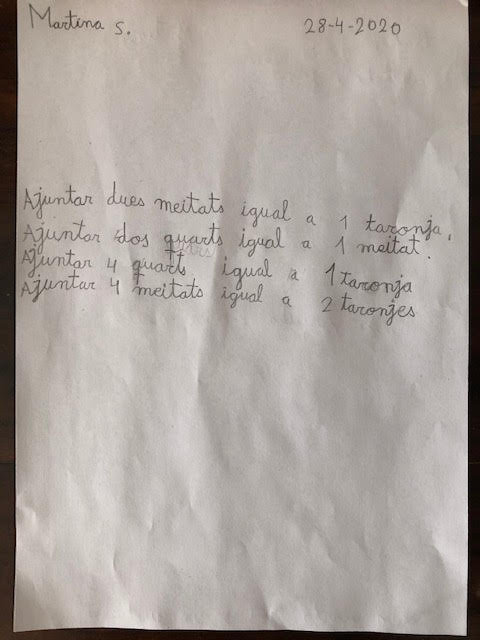 Martina S. 28-4-2020
Ajuntar dues meitats igual a 1 taronja.
Ajuntar dos quarts igual a 1 meitat.
Ajuntar 4 quarts igual a 1 taronja
Ajuntar 4 meitats igual a 2 taronjes